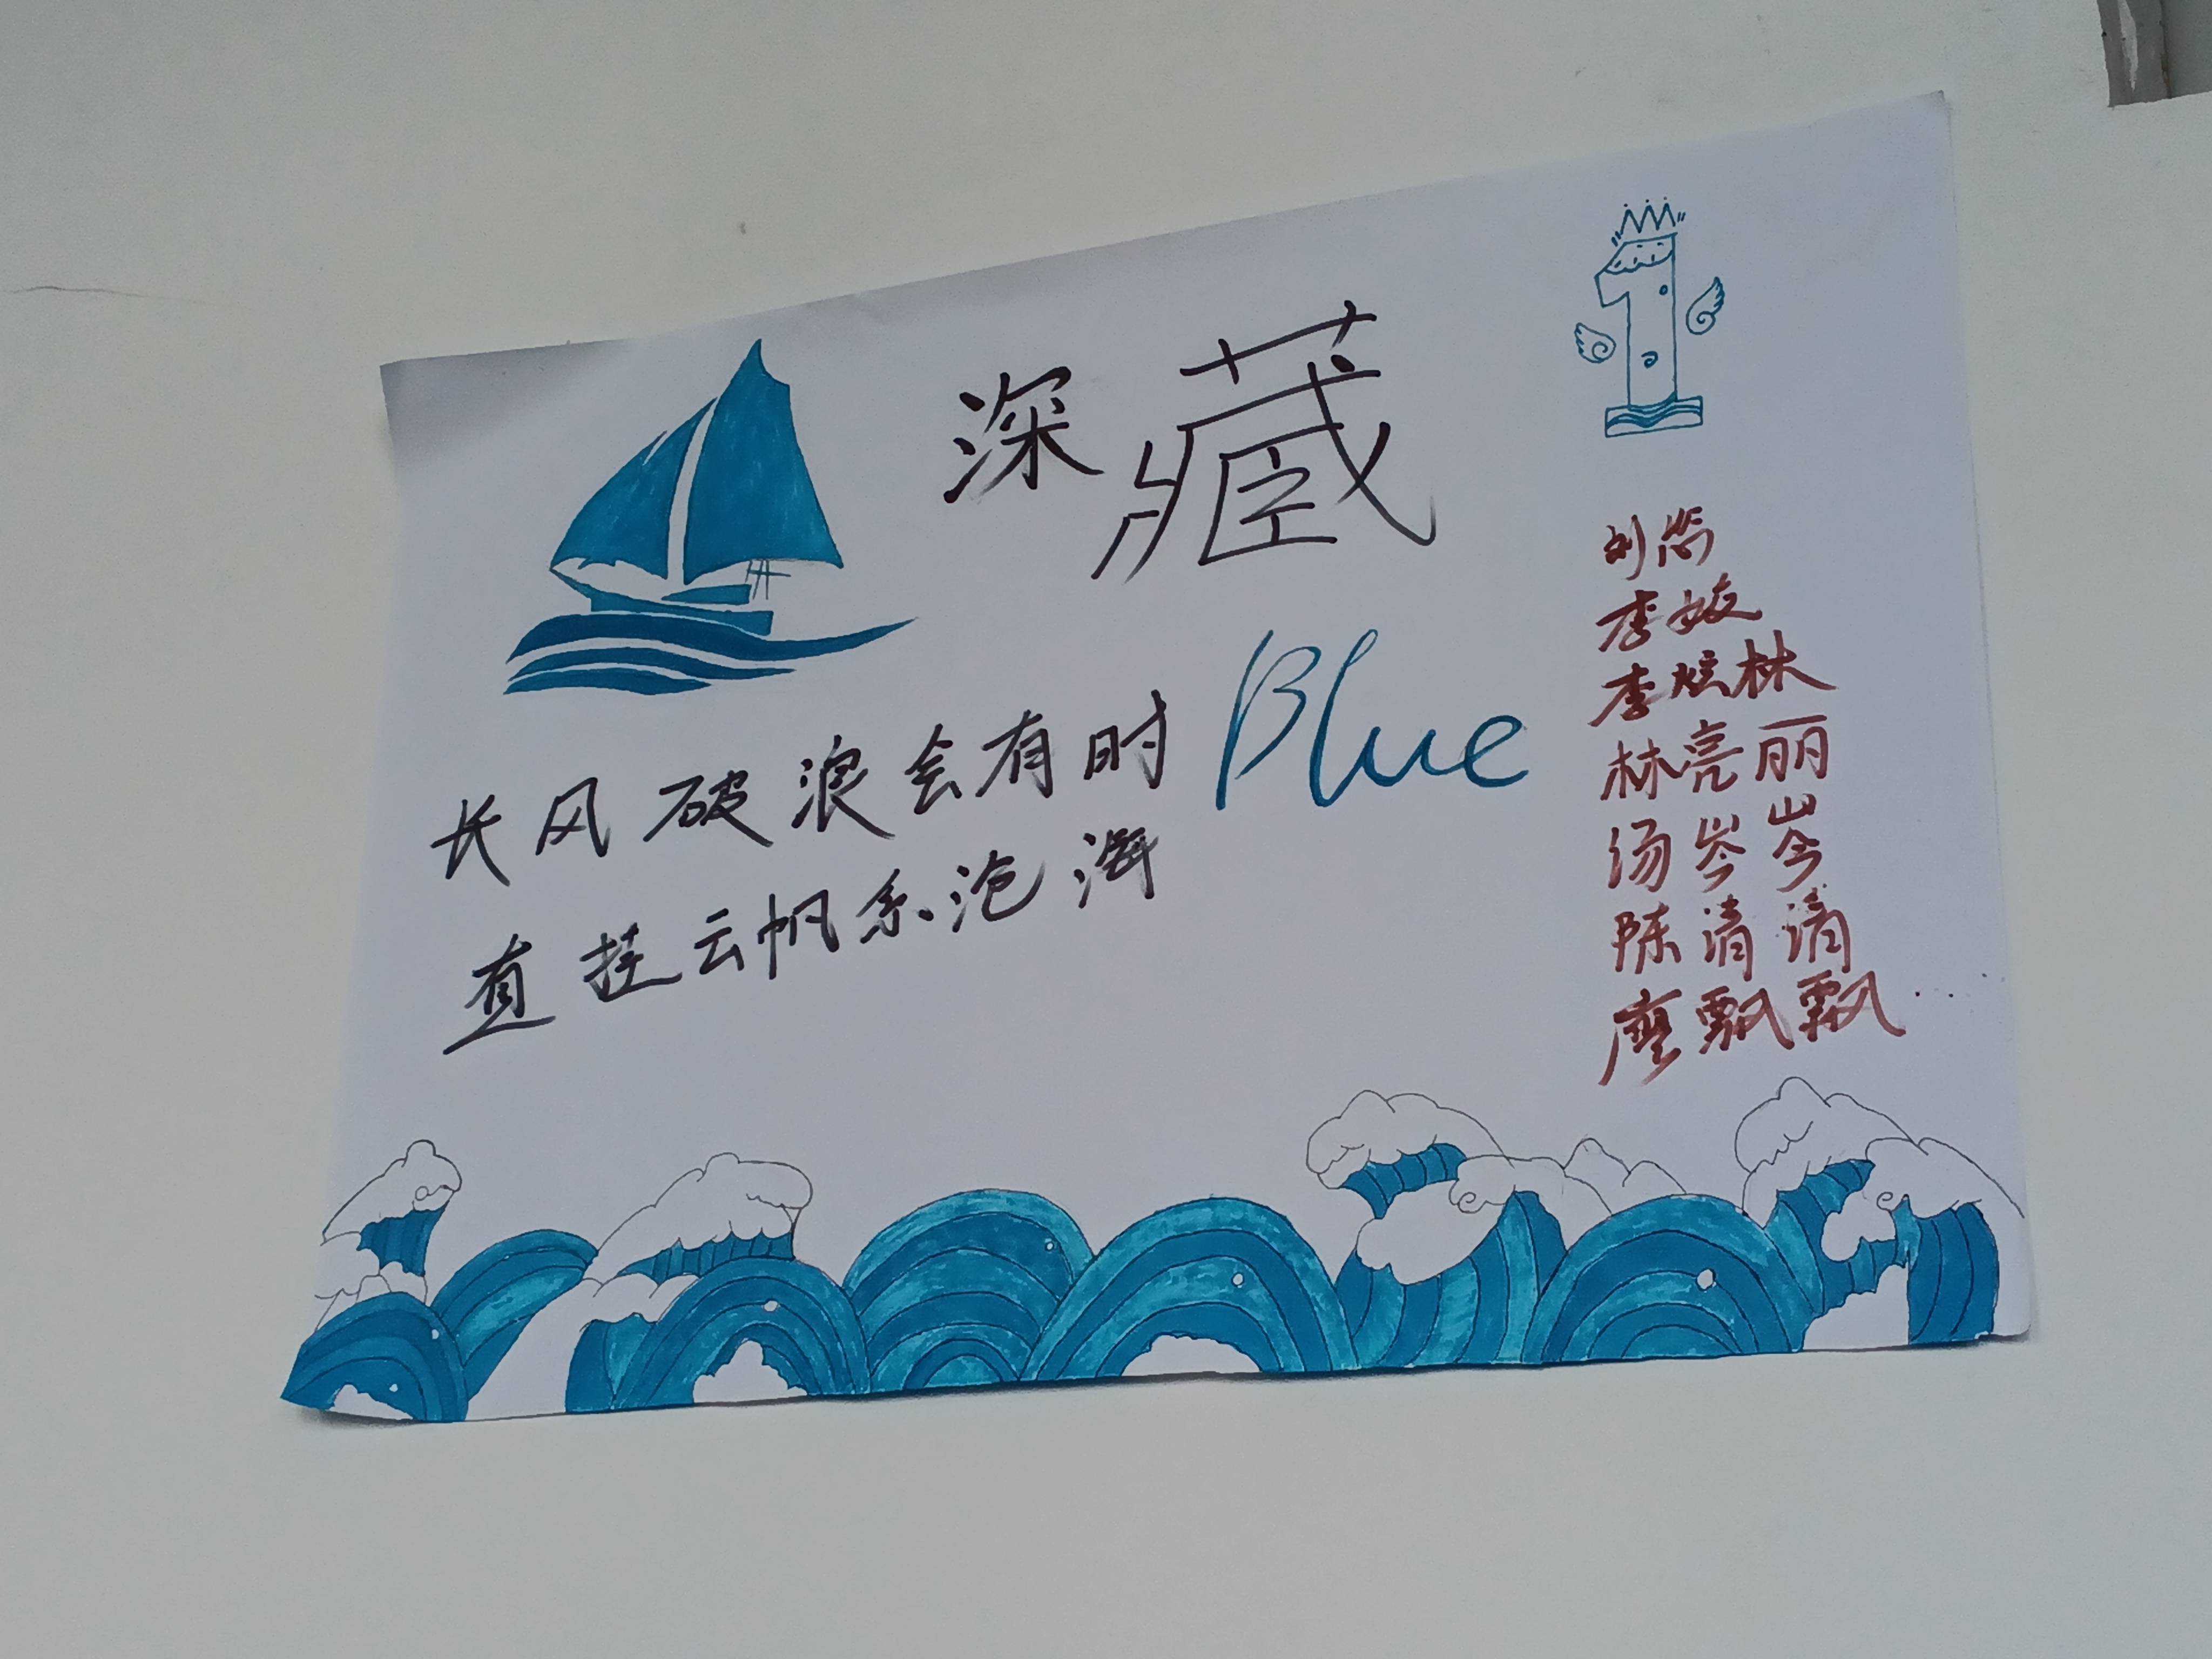 深藏
Blue
长风破浪会有时
直挂云帆系沧海
1
刘悠
李姣
李炫林
林亮丽
汤岑岑
陈清滴
廖飘飘